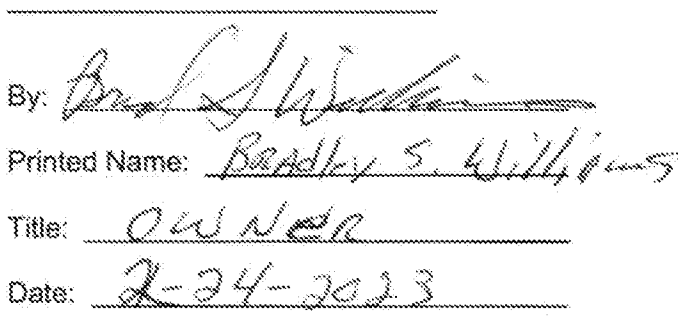 By: Brad S Williams
Printed Name: Bradley S. Williams
Title: OWNER
Date: 2-24-2023